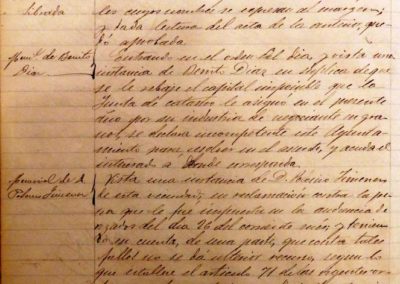 librada
los cuyos nombres se expresan al margen;
y dada lectura del acta de la anterior, que-
dó aprobada.
Men.l de Benito
Diaz
Entrando en el orden del dia, y vista una
instancia de Benito Diaz en súplica de que
se le rebaje el capital imponible que la
Junta de catastro le asignó en el presente
año por su industria de negociante en gra-
nos, se declara incompetente este Ayunta-
miento para resolver en el asunto, y acuda el
interesado a donde corresponda.
Memorial de D.
Vista una instancia de D. Jimenez
de esta vecindad, en reclamación contra la pe-
na que le fue impuesta en la audiencia de
juzgados del dia 26 del corriente mes; y tenien-
do en cuenta, de una parte, que contra tales
fallos no se dá ulterior recurso, segun lo
que establece el articulo 71 de las